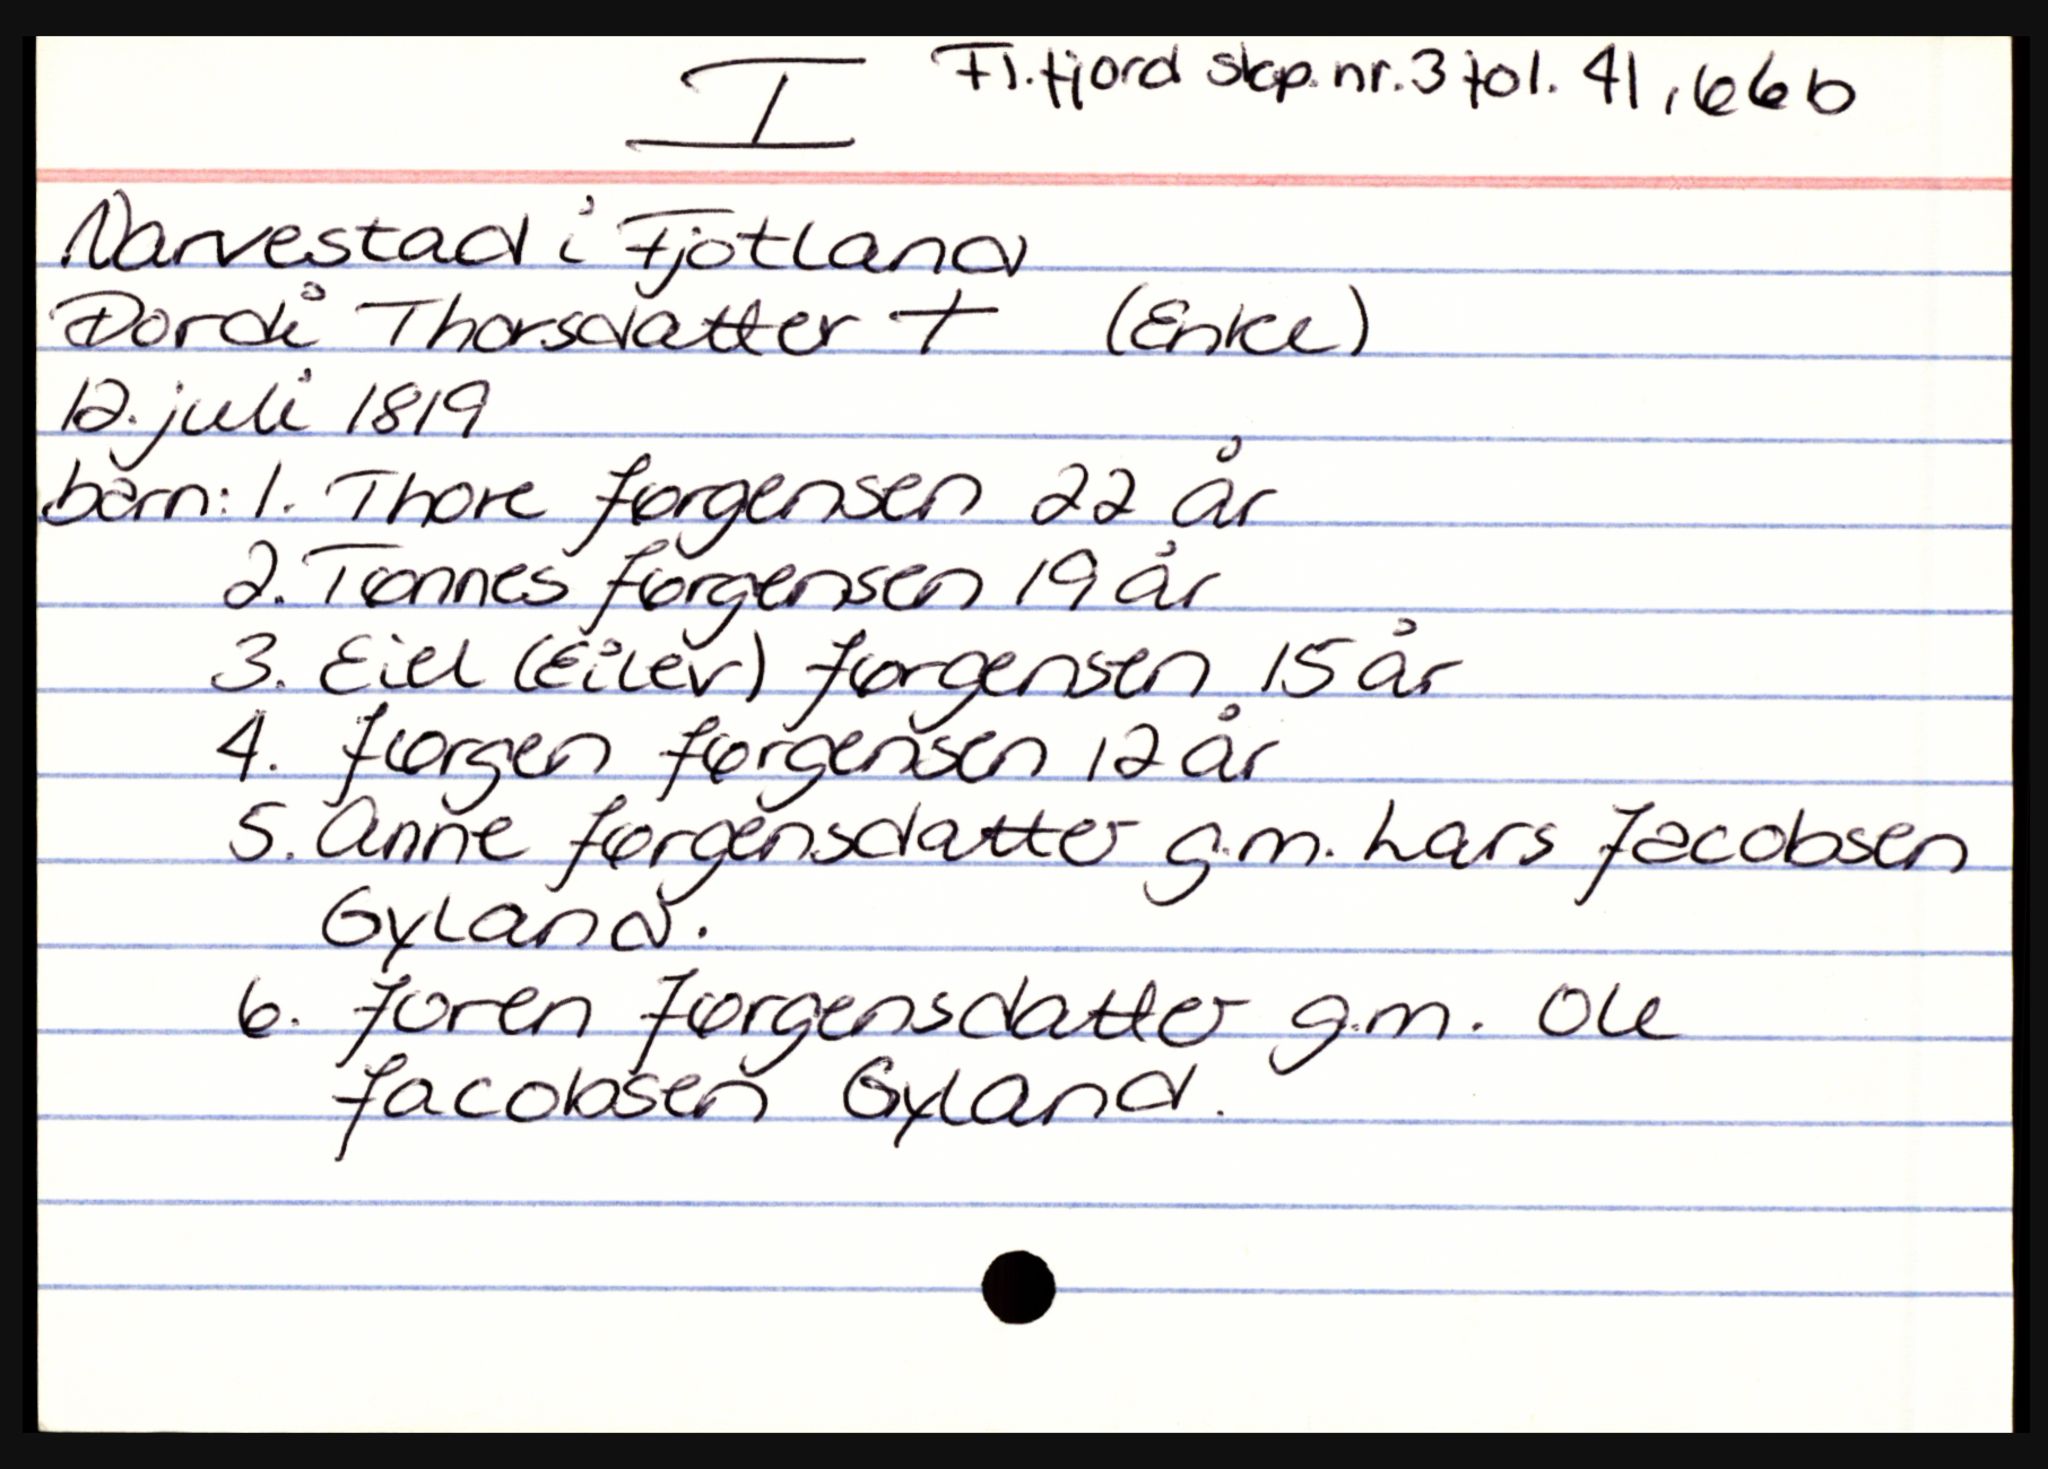 I Fl.fjord skp.nr.3 fol. 41, 66b
Narvestad i Fjotland
Dordi Thorsdatter + (Enke)
12. juli 1819
barn: 1. Thore Jørgensen 22 år
2. Tønnes Jørgensen 19 år
3. Eiel (Eilev) Jørgensen 15 år
4. Jørgen Jørgensen 12 år
5. Anne Jørgensdatter g.m. Lars Jacobsen
Gyland.
6. Joren Jørgensdatter g.m. Ole
Jacobsen Gyland.